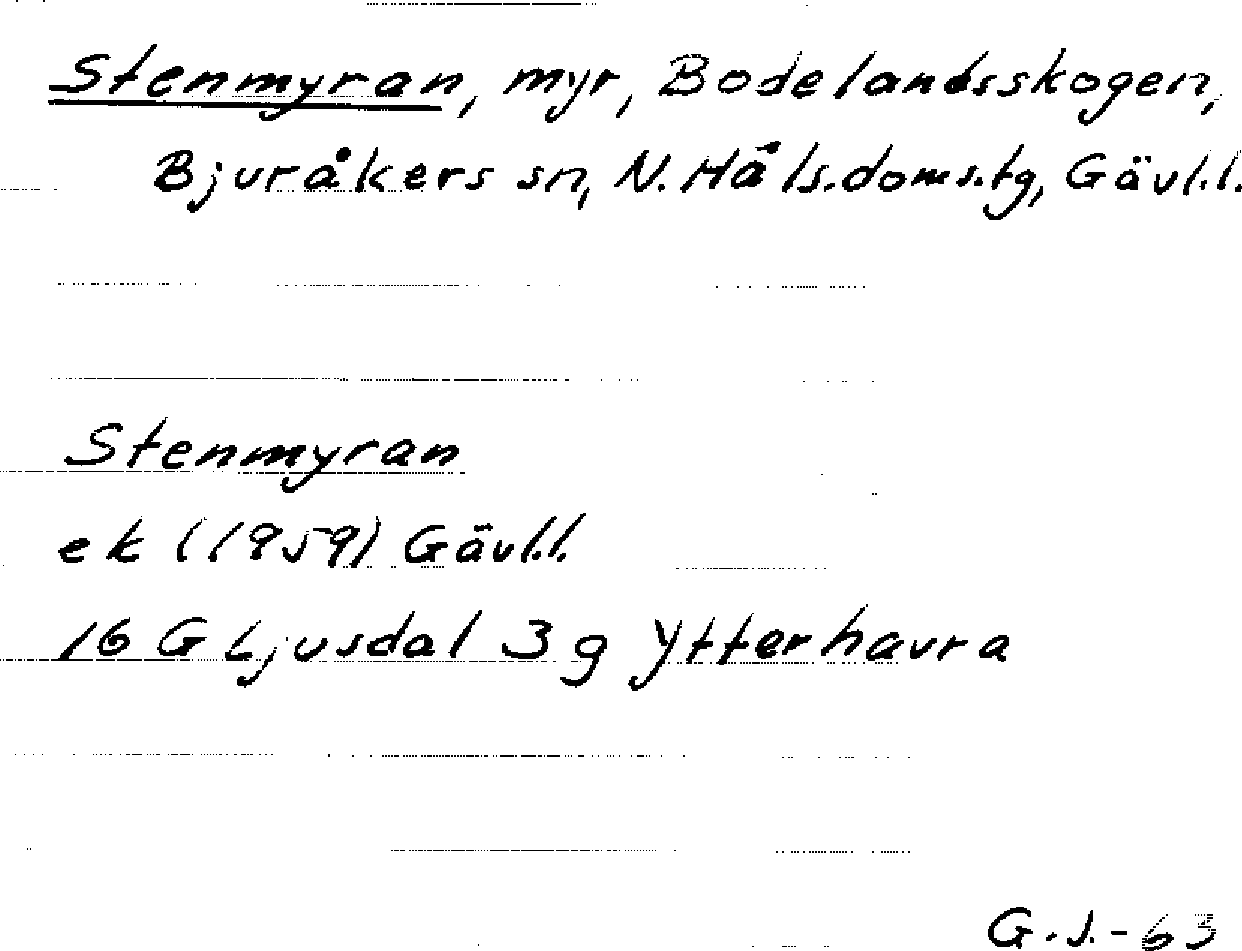 Stenmyran, myr, Bodelandsskogen,
Bjuråkers sn, N. Häls.doms.tg, Gävl.l.
Stenmyran
ek (1959) Gävl.l.
16 G Ljusdal 3 g Ytterhavra
G.J.-63